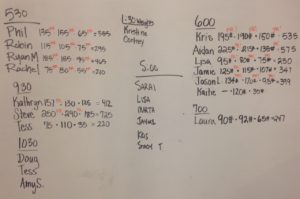 530
Phil 135# 155# 65# = 355
Robin 115 · 105 · 75 = 295
Ryan M 185 · 185 · 95 = 465
Rachel 75 · 80 · 55 = 210
930
Kathryn 157 · 130 · 125 = 412
Steve 250 · 290 · 185 = 725
Tess 75 · 110 · 35 = 220
1030
Doug
Tess
Amy S.
1:30 Weights
Kristine
Courtney
5:00
SARAI
LISA
MARTA
KOS
STACY T
600
Kris 195# · 190# · 150# = 535
Aidan 225# · 215# · 135# = 575
Lisa 95# · 80# · 75# = 230
Jamie 125# · 115# · 107# = 347
Jason L 134# · 170# · 95# = 399
Katie - · 120# · 35#
700
Laura 90# · 92# · 65# = 247